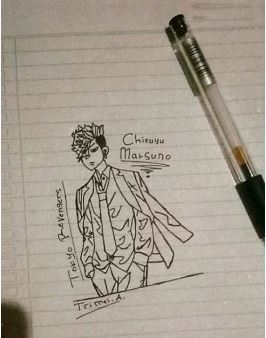 Chifuyu
Matsuno
Tokyo Revengers